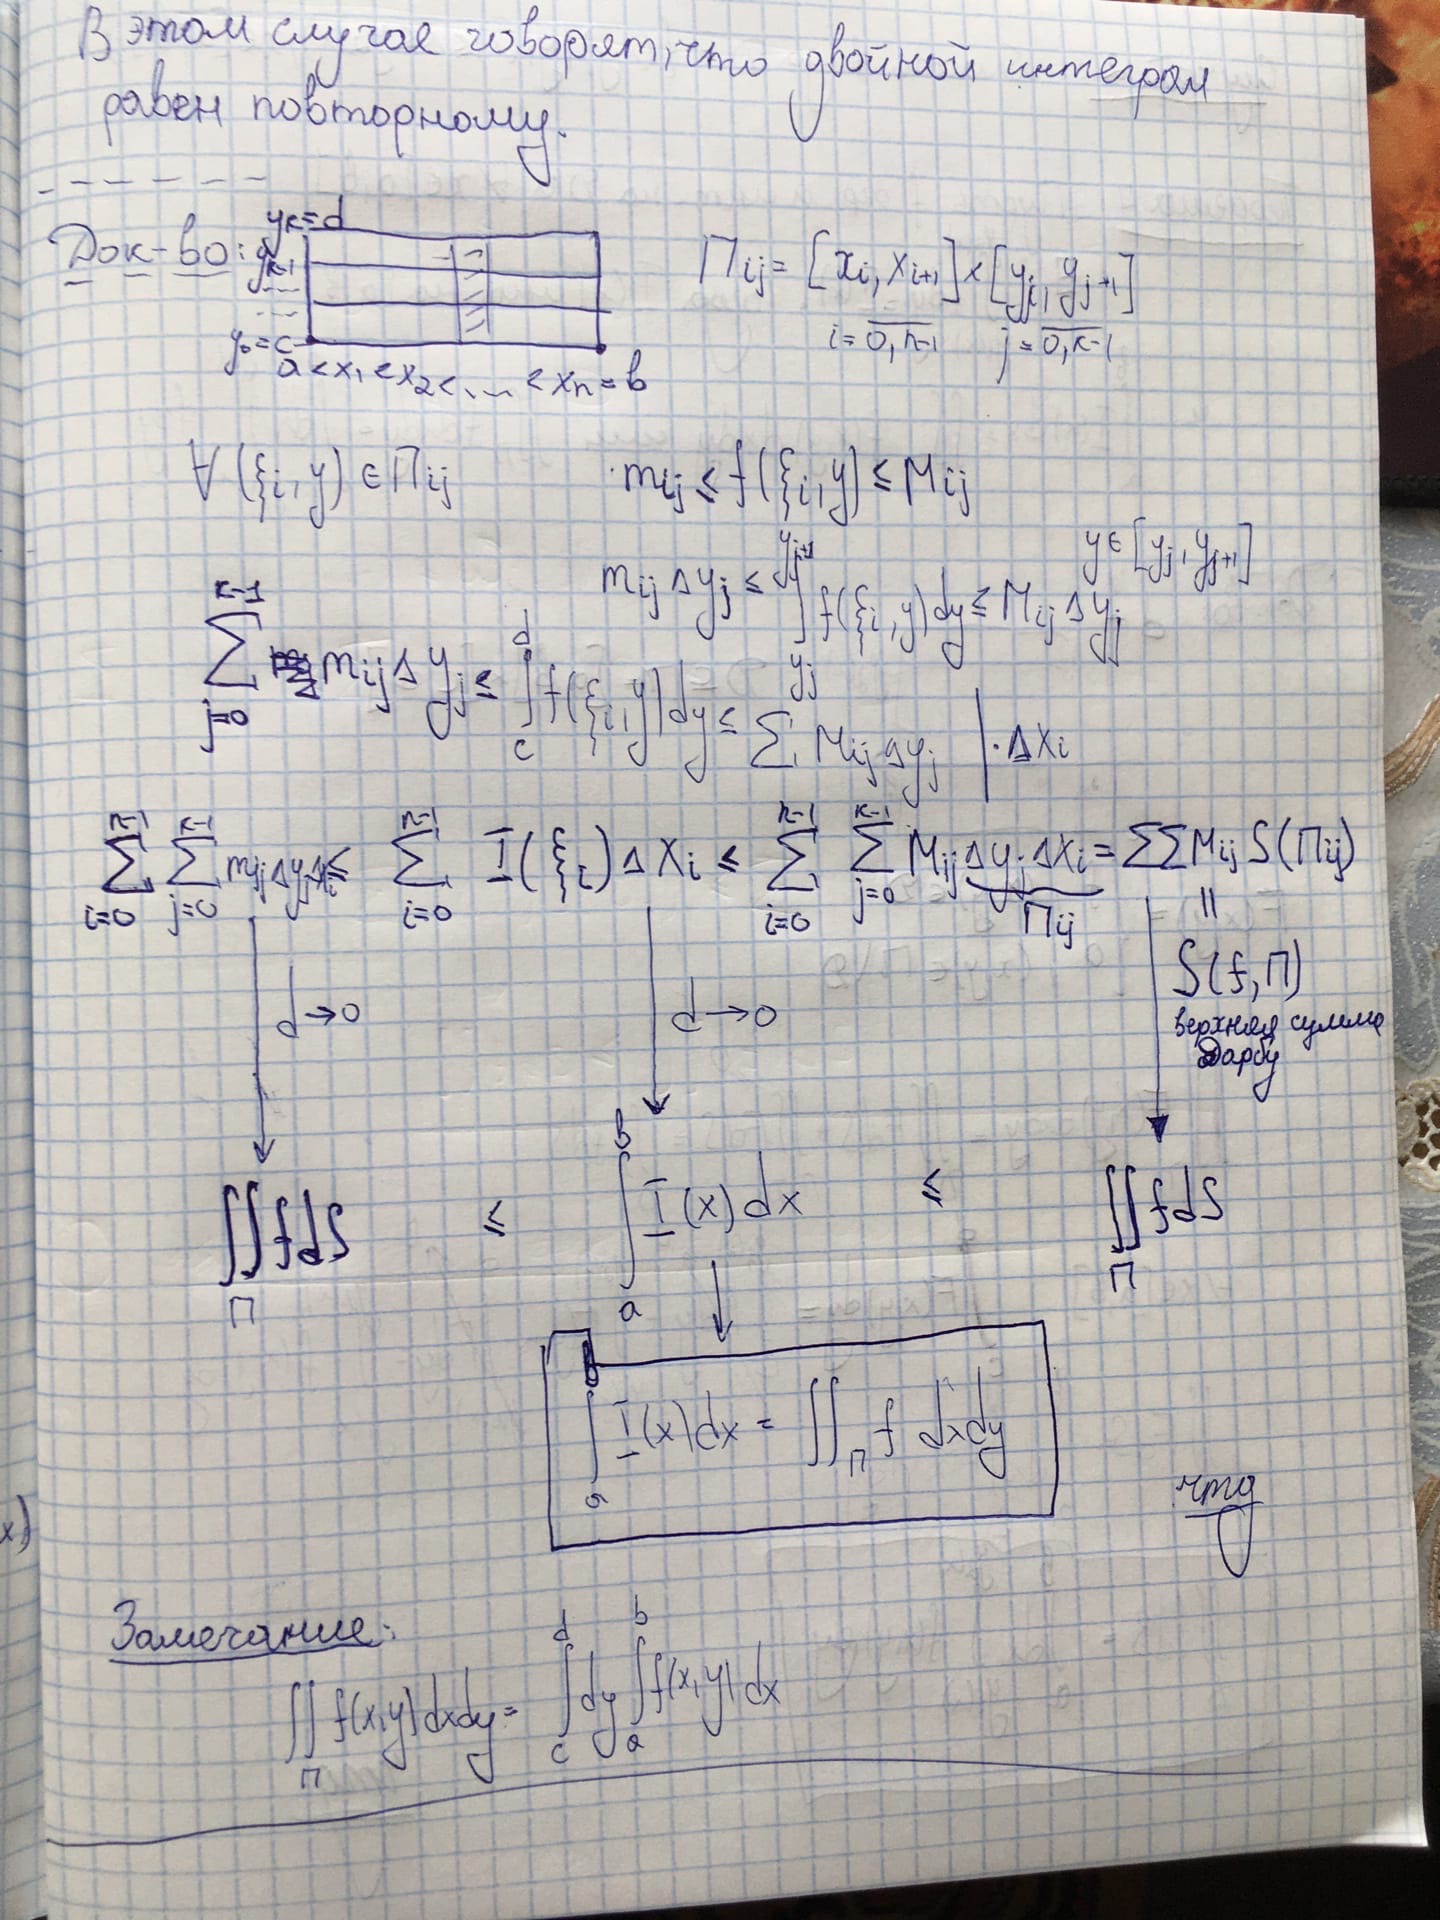 В этом случае говорят, что двойной интеграл
равен повторному.
Док-во:
yк = d
yк-1
y₀ = c
a < x₁ < x₂ < ... < xₙ = b
Пij = [xi, xi+1] × [yj, yj+1]
i = 0,n-1 j = 0,к-1
∀ (ξi, y) ∈ Пij mij ≤ f(ξi, y) ≤ Mij
y ∈ [yj, yj+1]
mij Δyj ≤ ∫_{yj}^{yj+1} f(ξi, y) dy ≤ Mij Δyj
∑_{j=0}^{к-1} mij Δyj ≤ ∫_c^d f(ξi, y) dy ≤ ∑ Mij Δyj | · Δxi
∑_{i=0}^{n-1} ∑_{j=0}^{к-1} mij Δyj Δxi ≤ ∑_{i=0}^{n-1} I(ξi) Δxi ≤ ∑_{i=0}^{n-1} ∑_{j=0}^{к-1} Mij Δyj Δxi = ∑∑ Mij S(Пij)
Пij
=
S(f, П)
верхняя сумма
Дарбу
d → 0 d → 0
∬_П f dS ≤ ∫_a^b I(x) dx ≤ ∬_П f dS
∫_a^b I(x) dx = ∬_П f dxdy
чтд
Замечание:
∬_П f(x,y) dxdy = ∫_c^d dy ∫_a^b f(x,y) dx
x)